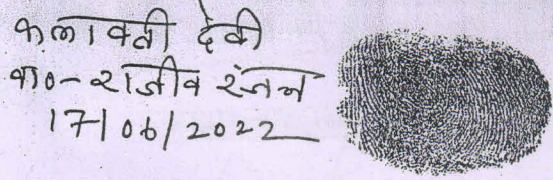 कलावती देवी
व०-राजीव रंजन
17/06/2022